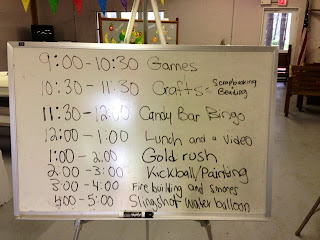 9:00-10:30 Games
10:30 - 11:30 Crafts - Scrapbooking
Beading
11:30 - 12:00 Candy Bar Bingo
12:00 - 1:00 Lunch and a Video
1:00 - 2:00 Gold rush
2:00 - 3:00 Kickball/Painting
3:00 - 4:00 Fire building and smores
4:00 - 5:00 Slingshot water balloon